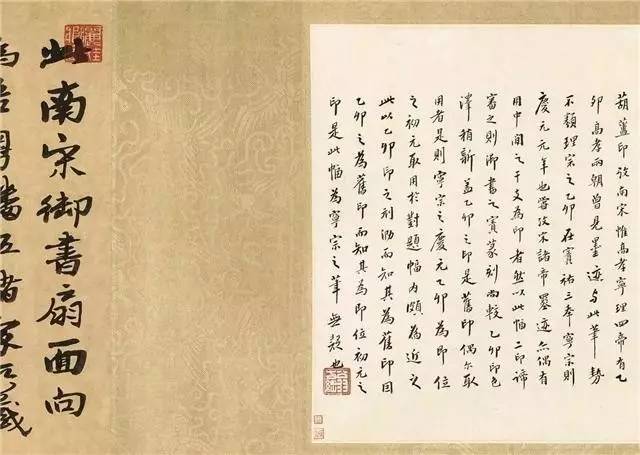 葫蘆印攷南宋惟高孝寧理四帝有乙
卯高孝兩朝曾見墨迹与此筆勢
不類理宗之乙卯在寶祐三年寧宗則
慶元元年也嘗攷宋諸帝墨迹亦偶有
用中間之干支為印者然以此幅二印諦
審之則御書之寶篆刻尚較乙卯印色
澤稍新蓋乙卯之印是舊印偶尔取
用者是則寧宗之慶元乙卯為即位
之初元取用於對題幅內頗為近之
此以乙卯印之刓泐而知其為舊印因
乙卯之為舊印而知其為即位初元之
印是此幅為寧宗之筆無疑也
此南宋御書扇面向
為吾